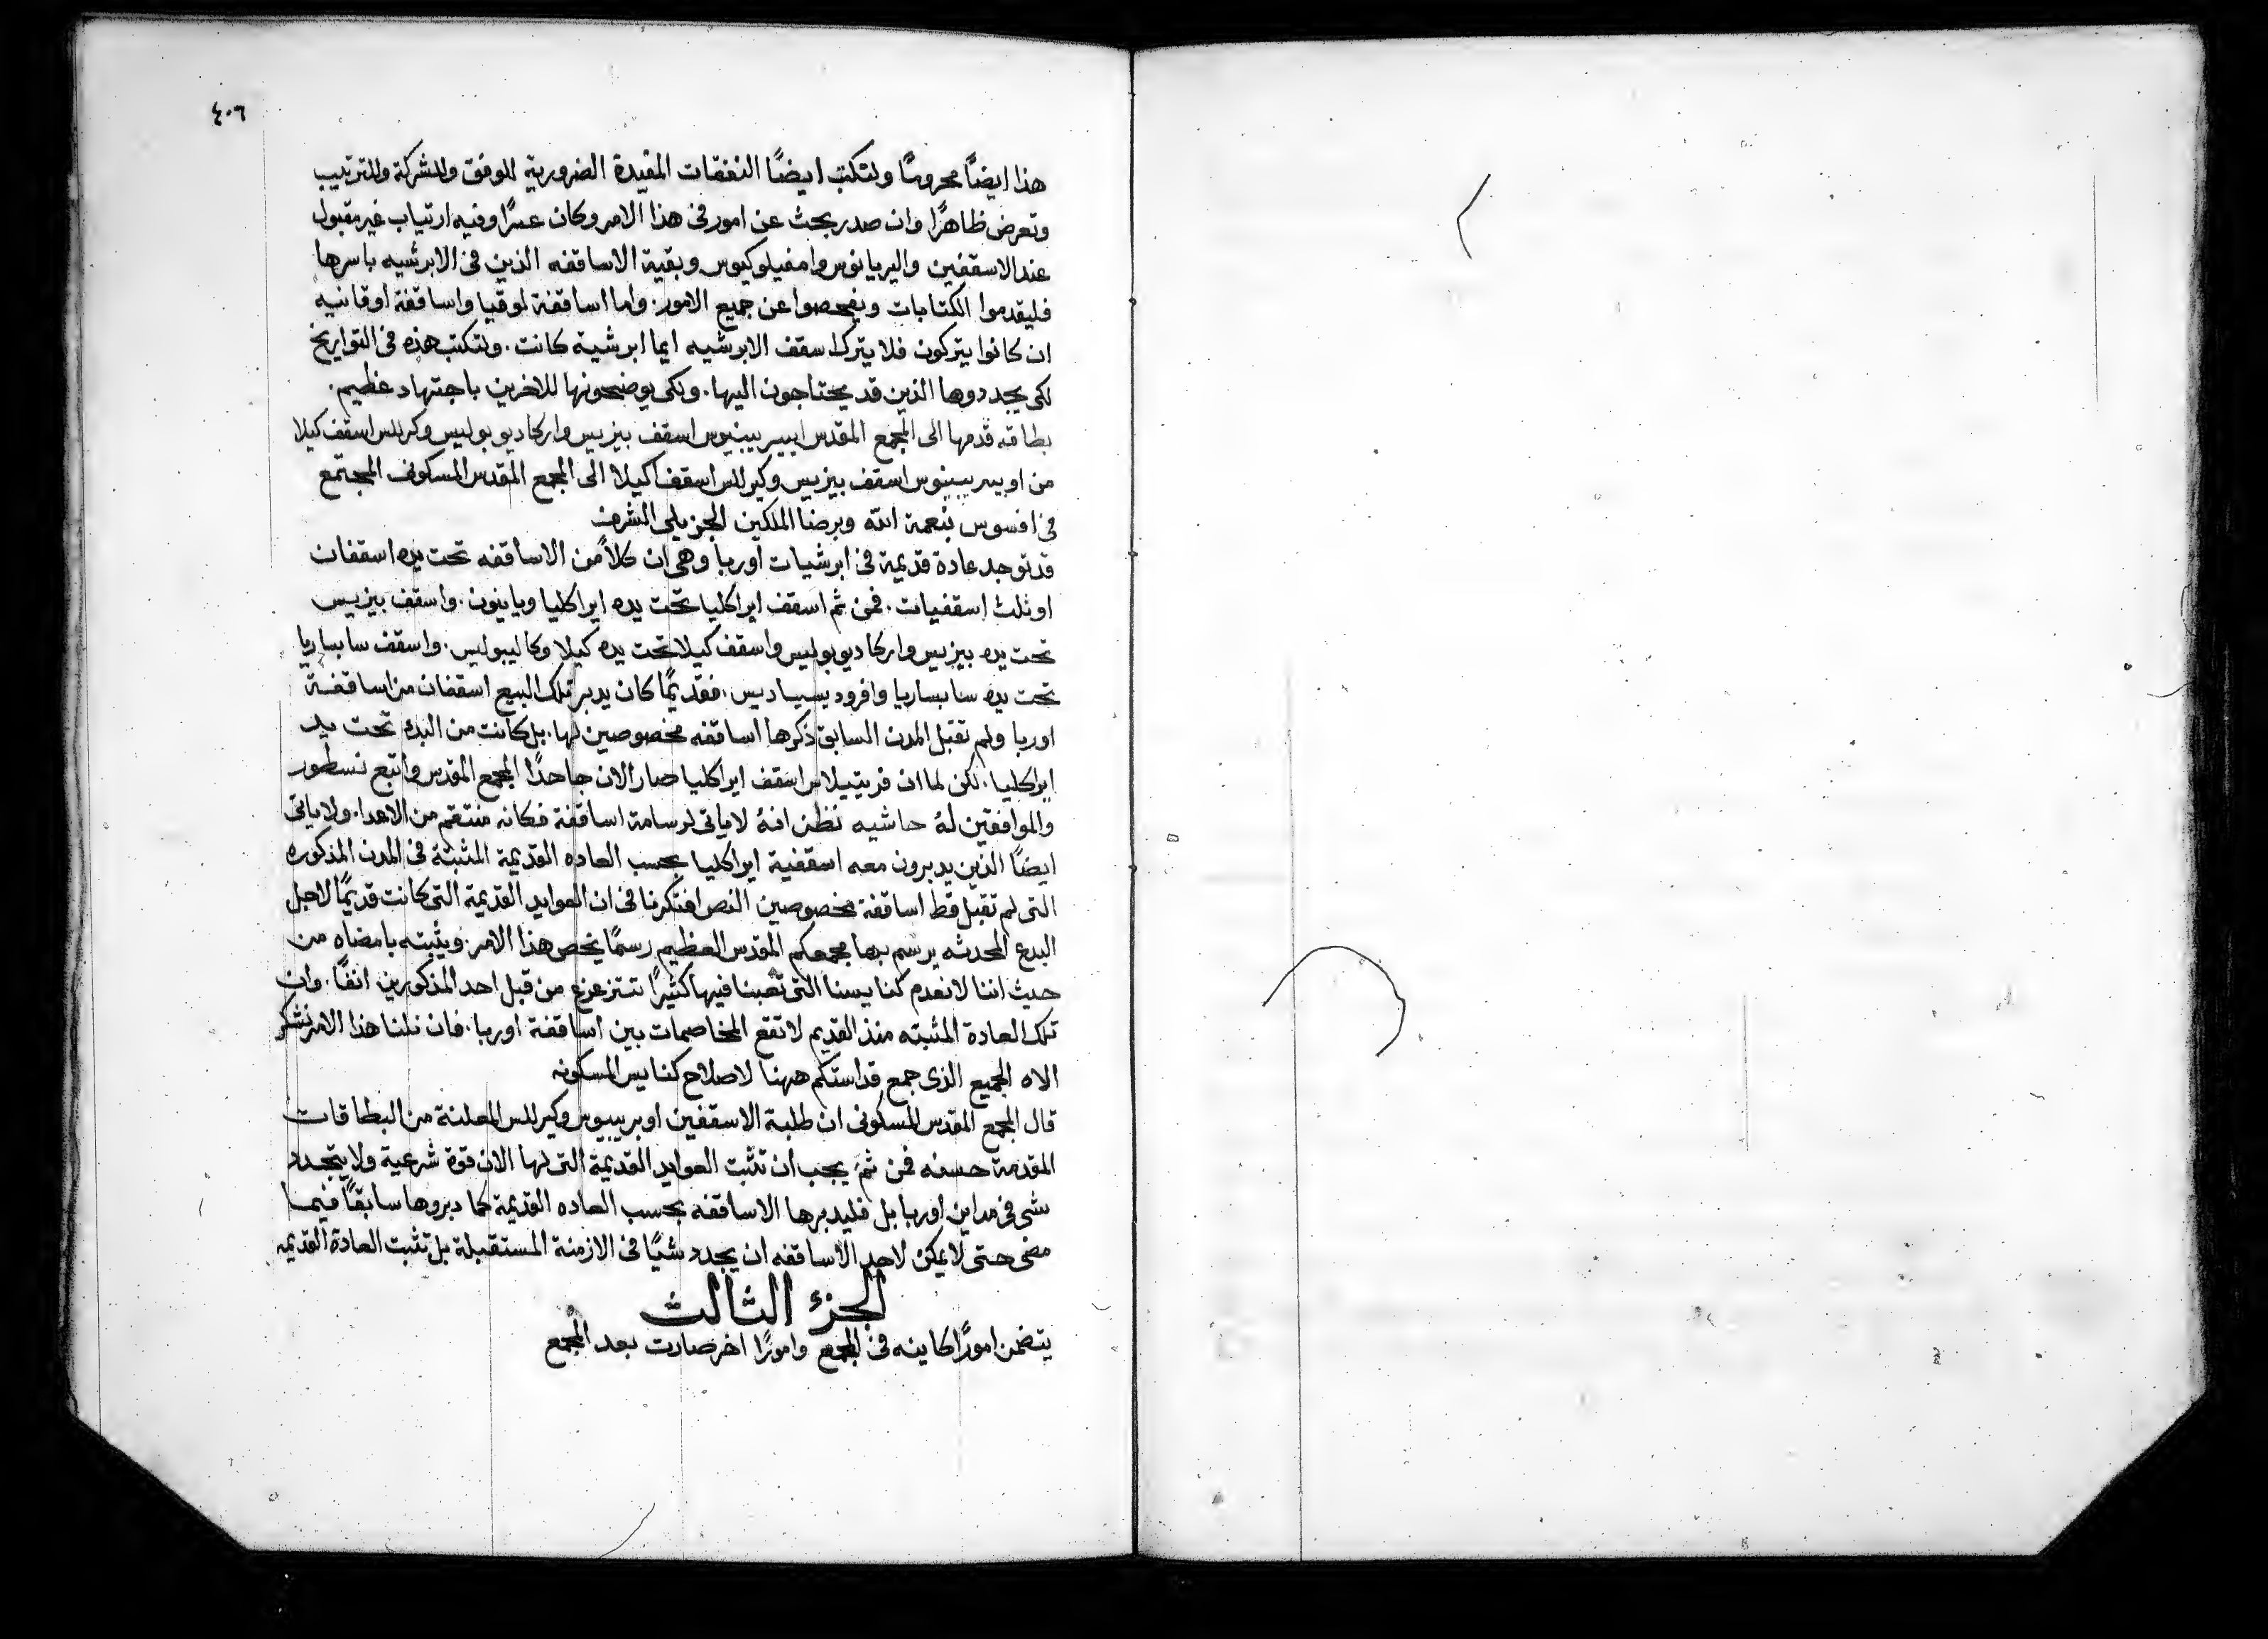 ٤٠٦
هذا ايضًا محرومًا ولتكتب ايضًا النفقات المفيدة الضرورية للوفق والشركة والترتيب
وتعرض ظاهرًا وان صدر بحث عن امور فى هذا الامر وكان عسرًا وفيه ارتياب غير مقبول
عند الاسقفين واليريانوس وامفيلوكيوس وبقية الاساقفه الذين فى الابرشيه باسرها
فليقدموا الكتابات ويفحصوا عن جميع الامور. واما اساقفة لوقيا واساقفة اوقانيه
ان كانوا يتركون فلا يترك اسقف الابرشيه ايما ابرشية كانت. ولتكتب هذه فى التواريخ
لكى يجددوها الذين قد يحتاجون اليها. ولكى يوضحونها للاخرين باجتهاد عظيم.
بطاقه قدمها الى المجمع المقدس ايبريبينوس اسقف بيزيس واركاديوبوليس وكرللس اسقف كيلا
من اوبيريبينوس اسقف بيزيس وكيرللس اسقف كيلا الى المجمع المقدس المسكونى المجتمع
فى افسوس بنعمة الله وبرضا الملكين الجزيلى الشرف
قد توجد عادة قديمة فى ابرشيات اوربا وهى ان كلاً من الاساقفه تحت يده اسقفان
او ثلث اسقفيات. فمن ثم اسقف ايراكليا تحت يده ايراكليا وبانيون. واسقف بيزيس
تحت يده بيزيس واركاديوبوليس واسقف كيلا تحت يده كيلا وكاليبوليس. واسقف سابساريا
تحت يده سابساريا وافروديسياديس. فقديمًا كان يدبر تلك البيع اسقفان من اساقفة
اوربا ولم تقبل المدن السابق ذكرها اساقفه مخصوصين لها. بل كانت من البدء تحت يد
ايراكليا. لكن لما ان فريتيلاس اسقف ايراكليا صار الان جاحدًا المجمع المقدس واتبع نسطور
والموافقين لهُ حاشيه نظن انهُ لا ياتى لرسامة اساقفة فكانه منتقم من الاعدا. ولا ياتى
ايضًا الذين يدبرون معه اسقفية ايراكليا بحسب العاده القديمة المثبتة فى المدن المذكوره
التى لم تقبل قط اساقفة مخصوصين النص افتكرنا فى ان العوايد القديمة التى كانت قديمًا لاجل
البدع المحدثه يرسم بها مجمعكم المقدس العظيم رسمًا يخص هذا الامر. ويثبته بامضاه من
حيث اننا لا نعدم كنايسنا التى تعبنا فيها كثيرًا تتزعزع من قبل احد المذكورين انفًا. وان
تلك العادة المثبته منذ القديم لا تقع المخاصمات بين اساقفة اوربا. فان نلنا هذا الامر نشكر
الاه الجميع الذى جمع قداستكم ههنا لاصلاح كنايس المسكونه
قال المجمع المقدس المسكونى ان طلبة الاسقفين اوبريبيوس وكيرللس المعلنة من البطاقات
المقدمة حسنه فمن ثمَ يجب ان تثبت العوايد القديمة التى لها الان قوة شرعية ولا يتجدد
شى فى مداين اوربا بل فليدبرها الاساقفه بحسب العاده القديمة كما دبروها سابقًا فيما
مضى حتى لا يمكن لاحد الاساقفه ان يجدد شيًا فى الازمنة المستقبلة بل تثبت العادة القديمه
الجزء الثالث
يتضمن امورًا كاينه فى المجمع وامورًا اخر صارت بعد المجمع